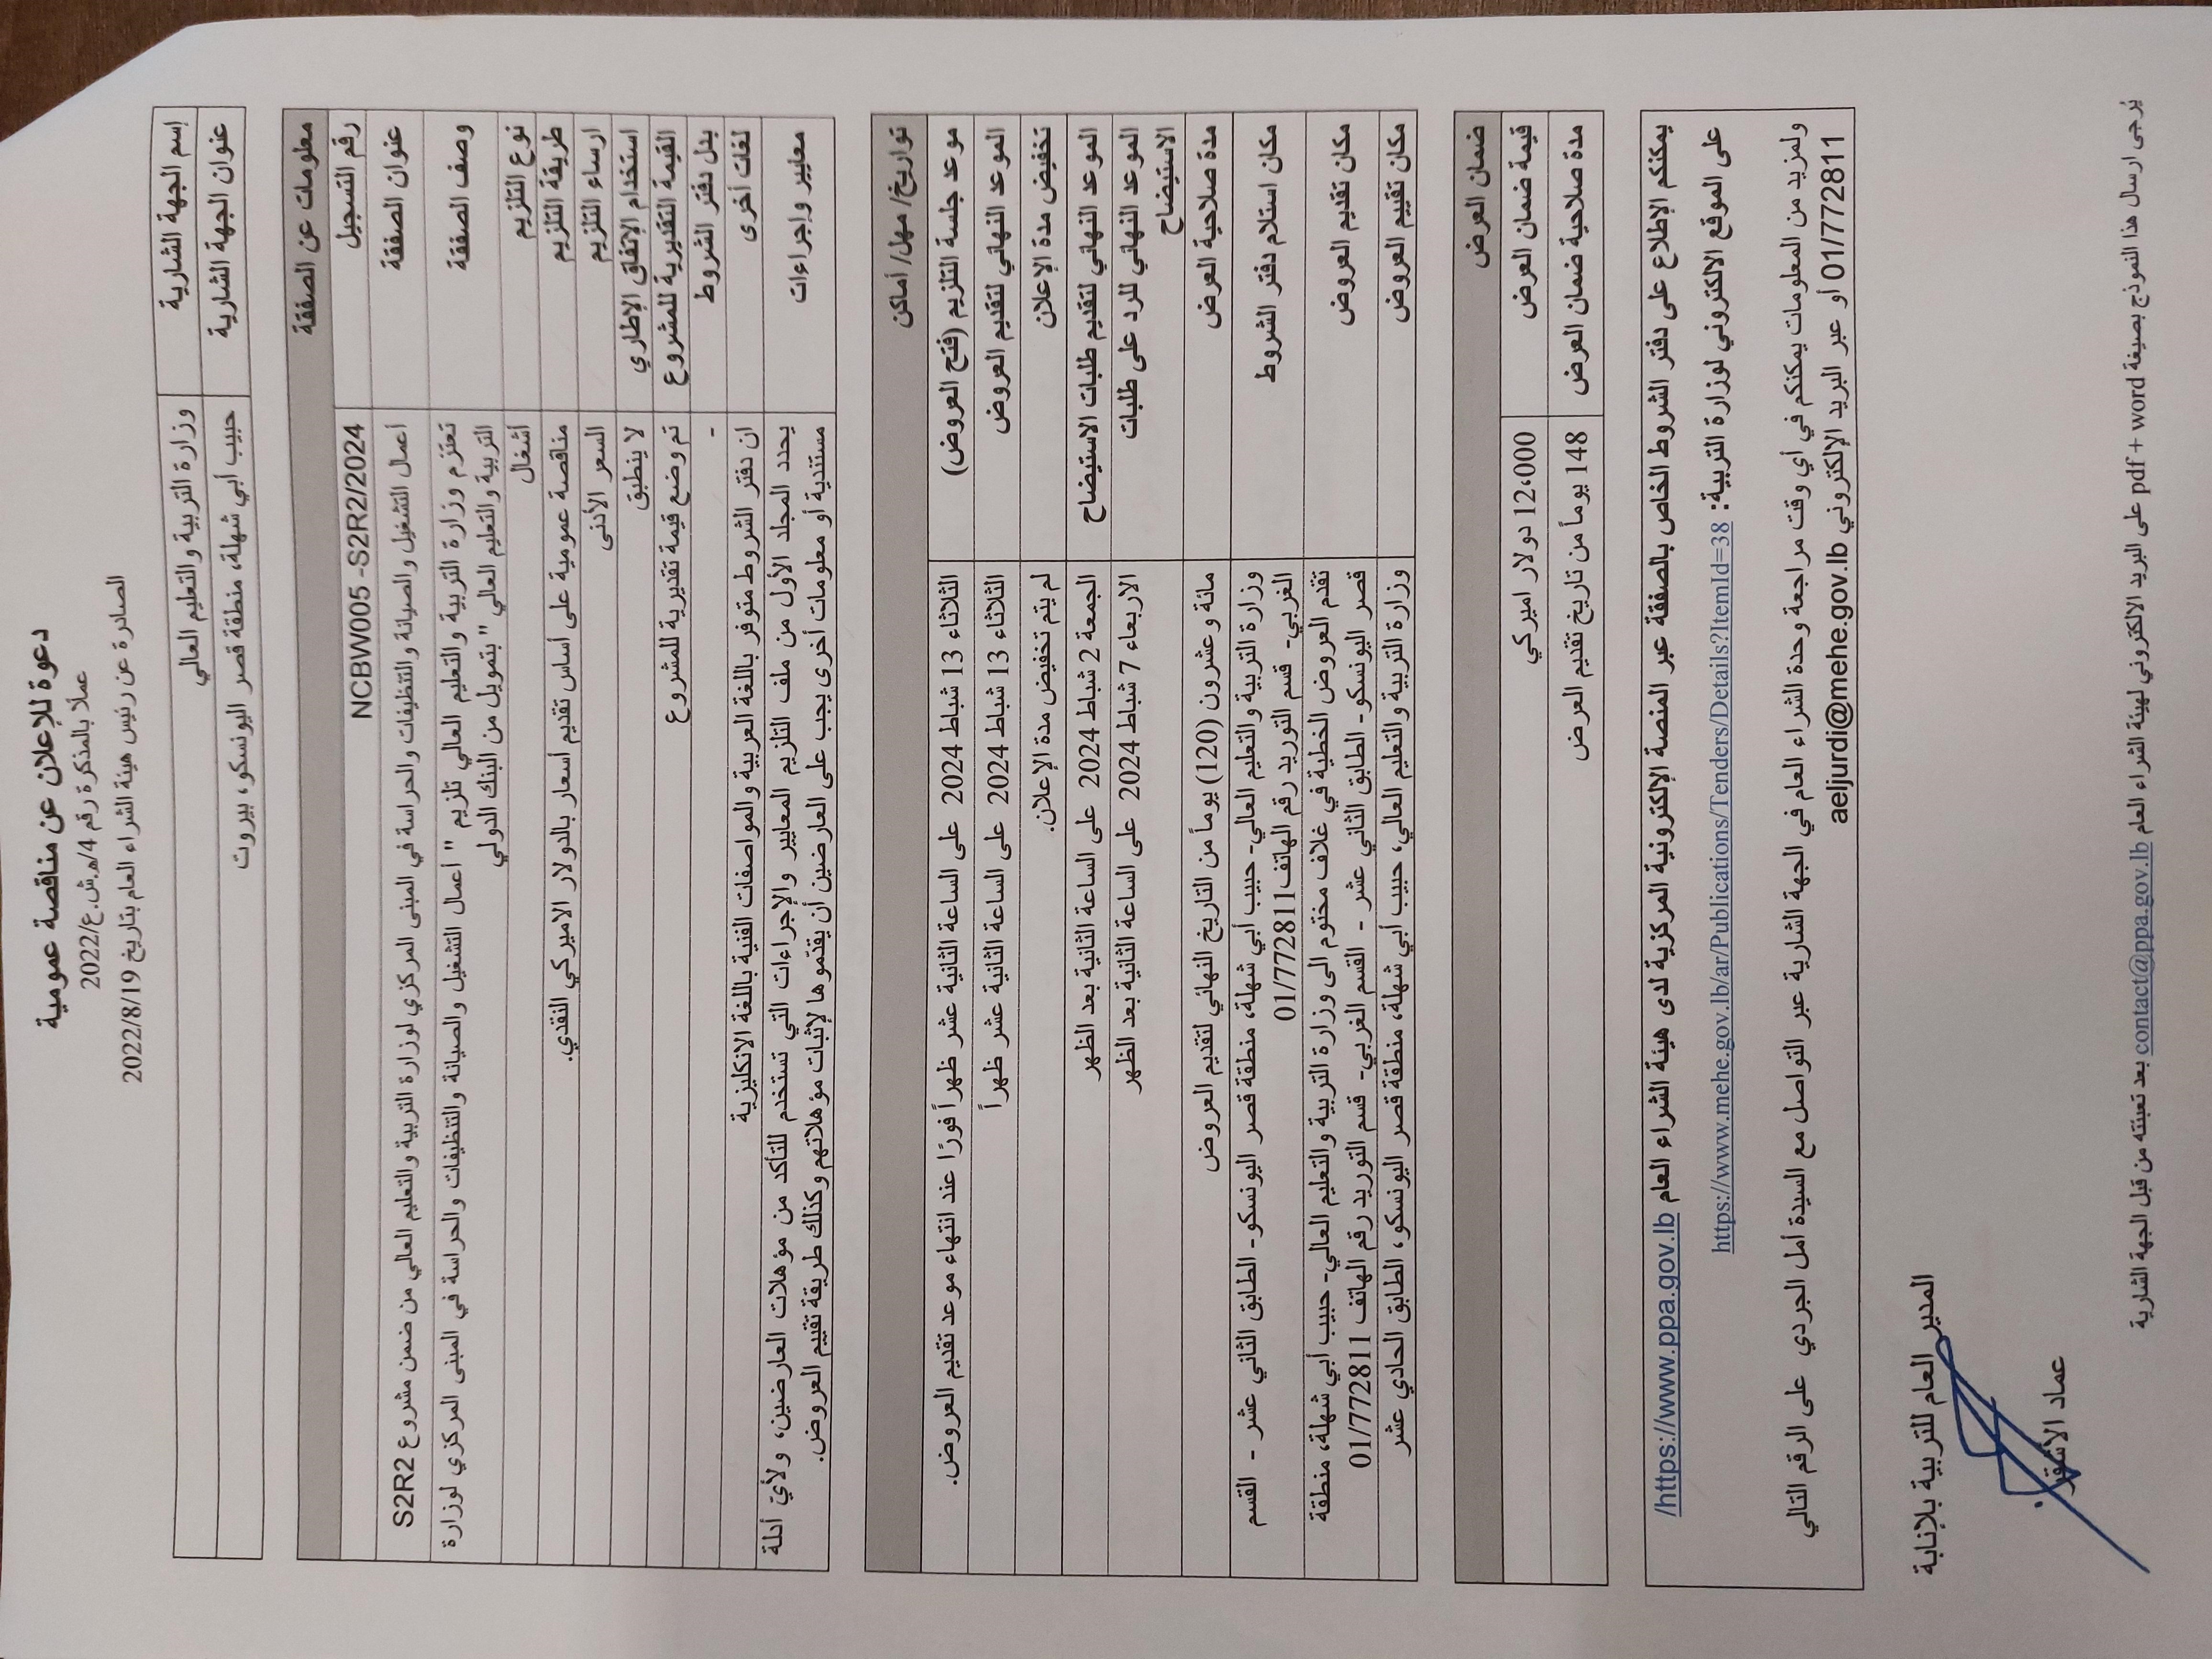 دعوة للإعلان عن مناقصة عمومية
عملا بالمذكرة رقم 4/ه.ش.ع/2022
الصادرة عن رئيس هيئة الشراء العام بتاريخ 2022/8/19
إسم الجهة الشارية
وزارة التربية والتعليم العالي
عنوان الجهة الشارية
حبيب أبي شهلة، منطقة قصر اليونسكو، بيروت
معلومات عن الصفقة
رقم التسجيل
NCBW005 -S2R2/2024
عنوان الصفقة
اعمال التشغيل والصيانة والتنظيفات والحراسة في المبنى المركزي لوزارة التربية والتعليم العالي من ضمن مشروع S2R2
وصف الصفقة
تعتزم وزارة التربية والتعليم العالي تلزيم " اعمال التشغيل والصيانة والتنظيفات والحراسة في المبنى المركزي لوزارة
التربية والتعليم العالي" بتمويل من البنك الدولي
نوع التلزيم
أشغال
طريقة التلزيم
مناقصة عمومية على أساس تقديم أسعار بالدولار الاميركي النقدي.
ارساء التلزيم
السعر الأدنى
استخدام الإتفاق الإطاري
لا ينطبق
القيمة التقديرية للمشروع
تم وضع قيمة تقديرية للمشروع
بدل دفتر الشروط
-
لغات أخرى
ان دفتر الشروط متوفر باللغة العربية والمواصفات الفنية باللغة الانكليزية
معايير وإجراءات
يحدد المجلد الأول من ملف التلزيم المعايير والإجراءات التي تستخدم للتأكد من مؤهلات العارضين، ولأيّ أدلة
مستندية أو معلومات أخرى يجب على العارضين أن يقدّموها لإثبات مؤهلاتهم وكذلك طريقة تقييم العروض.
تواريخ/ مهل/ أماكن
موعد جلسة التلزيم (فتح العروض)
الثلاثاء 13 شباط 2024 على الساعة الثانية عشر ظهراً فورًا عند انتهاء موعد تقديم العروض.
الموعد النهائي لتقديم العروض
الثلاثاء 13 شباط 2024 على الساعة الثانية عشر ظهراً
تخفيض مدة الإعلان
لم يتم تخفيض مدة الإعلان.
الموعد النهائي لتقديم طلبات الاستيضاح
الجمعة 2 شباط 2024 على الساعة الثانية بعد الظهر
الموعد النهائي للرد على طلبات
الاستيضاح
الاربعاء 7 شباط 2024 على الساعة الثانية بعد الظهر
مدة صلاحية العرض
مائة وعشرون (120) يوماً من التاريخ النهائي لتقديم العروض
مكان استلام دفتر الشروط
وزارة التربية والتعليم العالي- حبيب أبي شهلة، منطقة قصر اليونسكو- الطابق الثاني عشر - القسم
الغربي- قسم التوريد رقم الهاتف01/772811
مكان تقديم العروض
تقدم العروض الخطية في غلاف مختوم الى وزارة التربية والتعليم العالي- حبيب أبي شهلة، منطقة
قصر اليونسكو- الطابق الثاني عشر - القسم الغربي- قسم التوريد رقم الهاتف 01/772811
مكان تقييم العروض
وزارة التربية والتعليم العالي، حبيب أبي شهلة، منطقة قصر اليونسكو، الطابق الحادي عشر
ضمان العرض
قيمة ضمان العرض
12،000 دولار اميركي
مدة صلاحية ضمان العرض
148 يوماً من تاريخ تقديم العرض
يمكنكم الإطلاع على دفتر الشروط الخاص بالصفقة عبر المنصة الإلكترونية المركزية لدى هيئة الشراء العام https://www.ppa.gov.lb/
على الموقع الالكتروني لوزارة التربية: https://www.mehe.gov.lb/ar/Publications/Tenders/Details?ItemId=38
ولمزيد من المعلومات يمكنكم في أي وقت مراجعة وحدة الشراء العام في الجهة الشارية عبر التواصل مع السيدة أمل الجردي على الرقم التالي
01/772811 أو عبر البريد الإلكتروني aeljurdi@mehe.gov.lb
المدير العام للتربية بالإنابة
عماد الأشقر
يُرجى ارسال هذا النموذج بصيغة pdf + word على البريد الالكتروني لهيئة الشراء العام contact@ppa.gov.lb بعد تعبئته من قبل الجهة الشارية